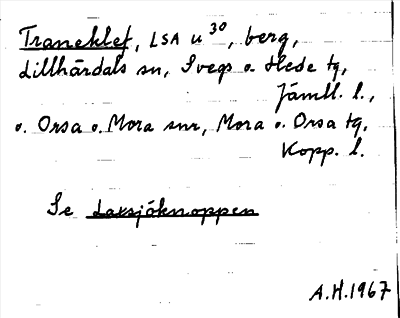 Traneklet, LSA u 30, berg,
Lillhärdals sn, Svegs o. Hede tg,
Jämtl. l.,
o. Orsa o. Mora snr, Mora o. Orsa tg,
Kopp. l.
Se Laxsjöknoppen
A.H. 1967